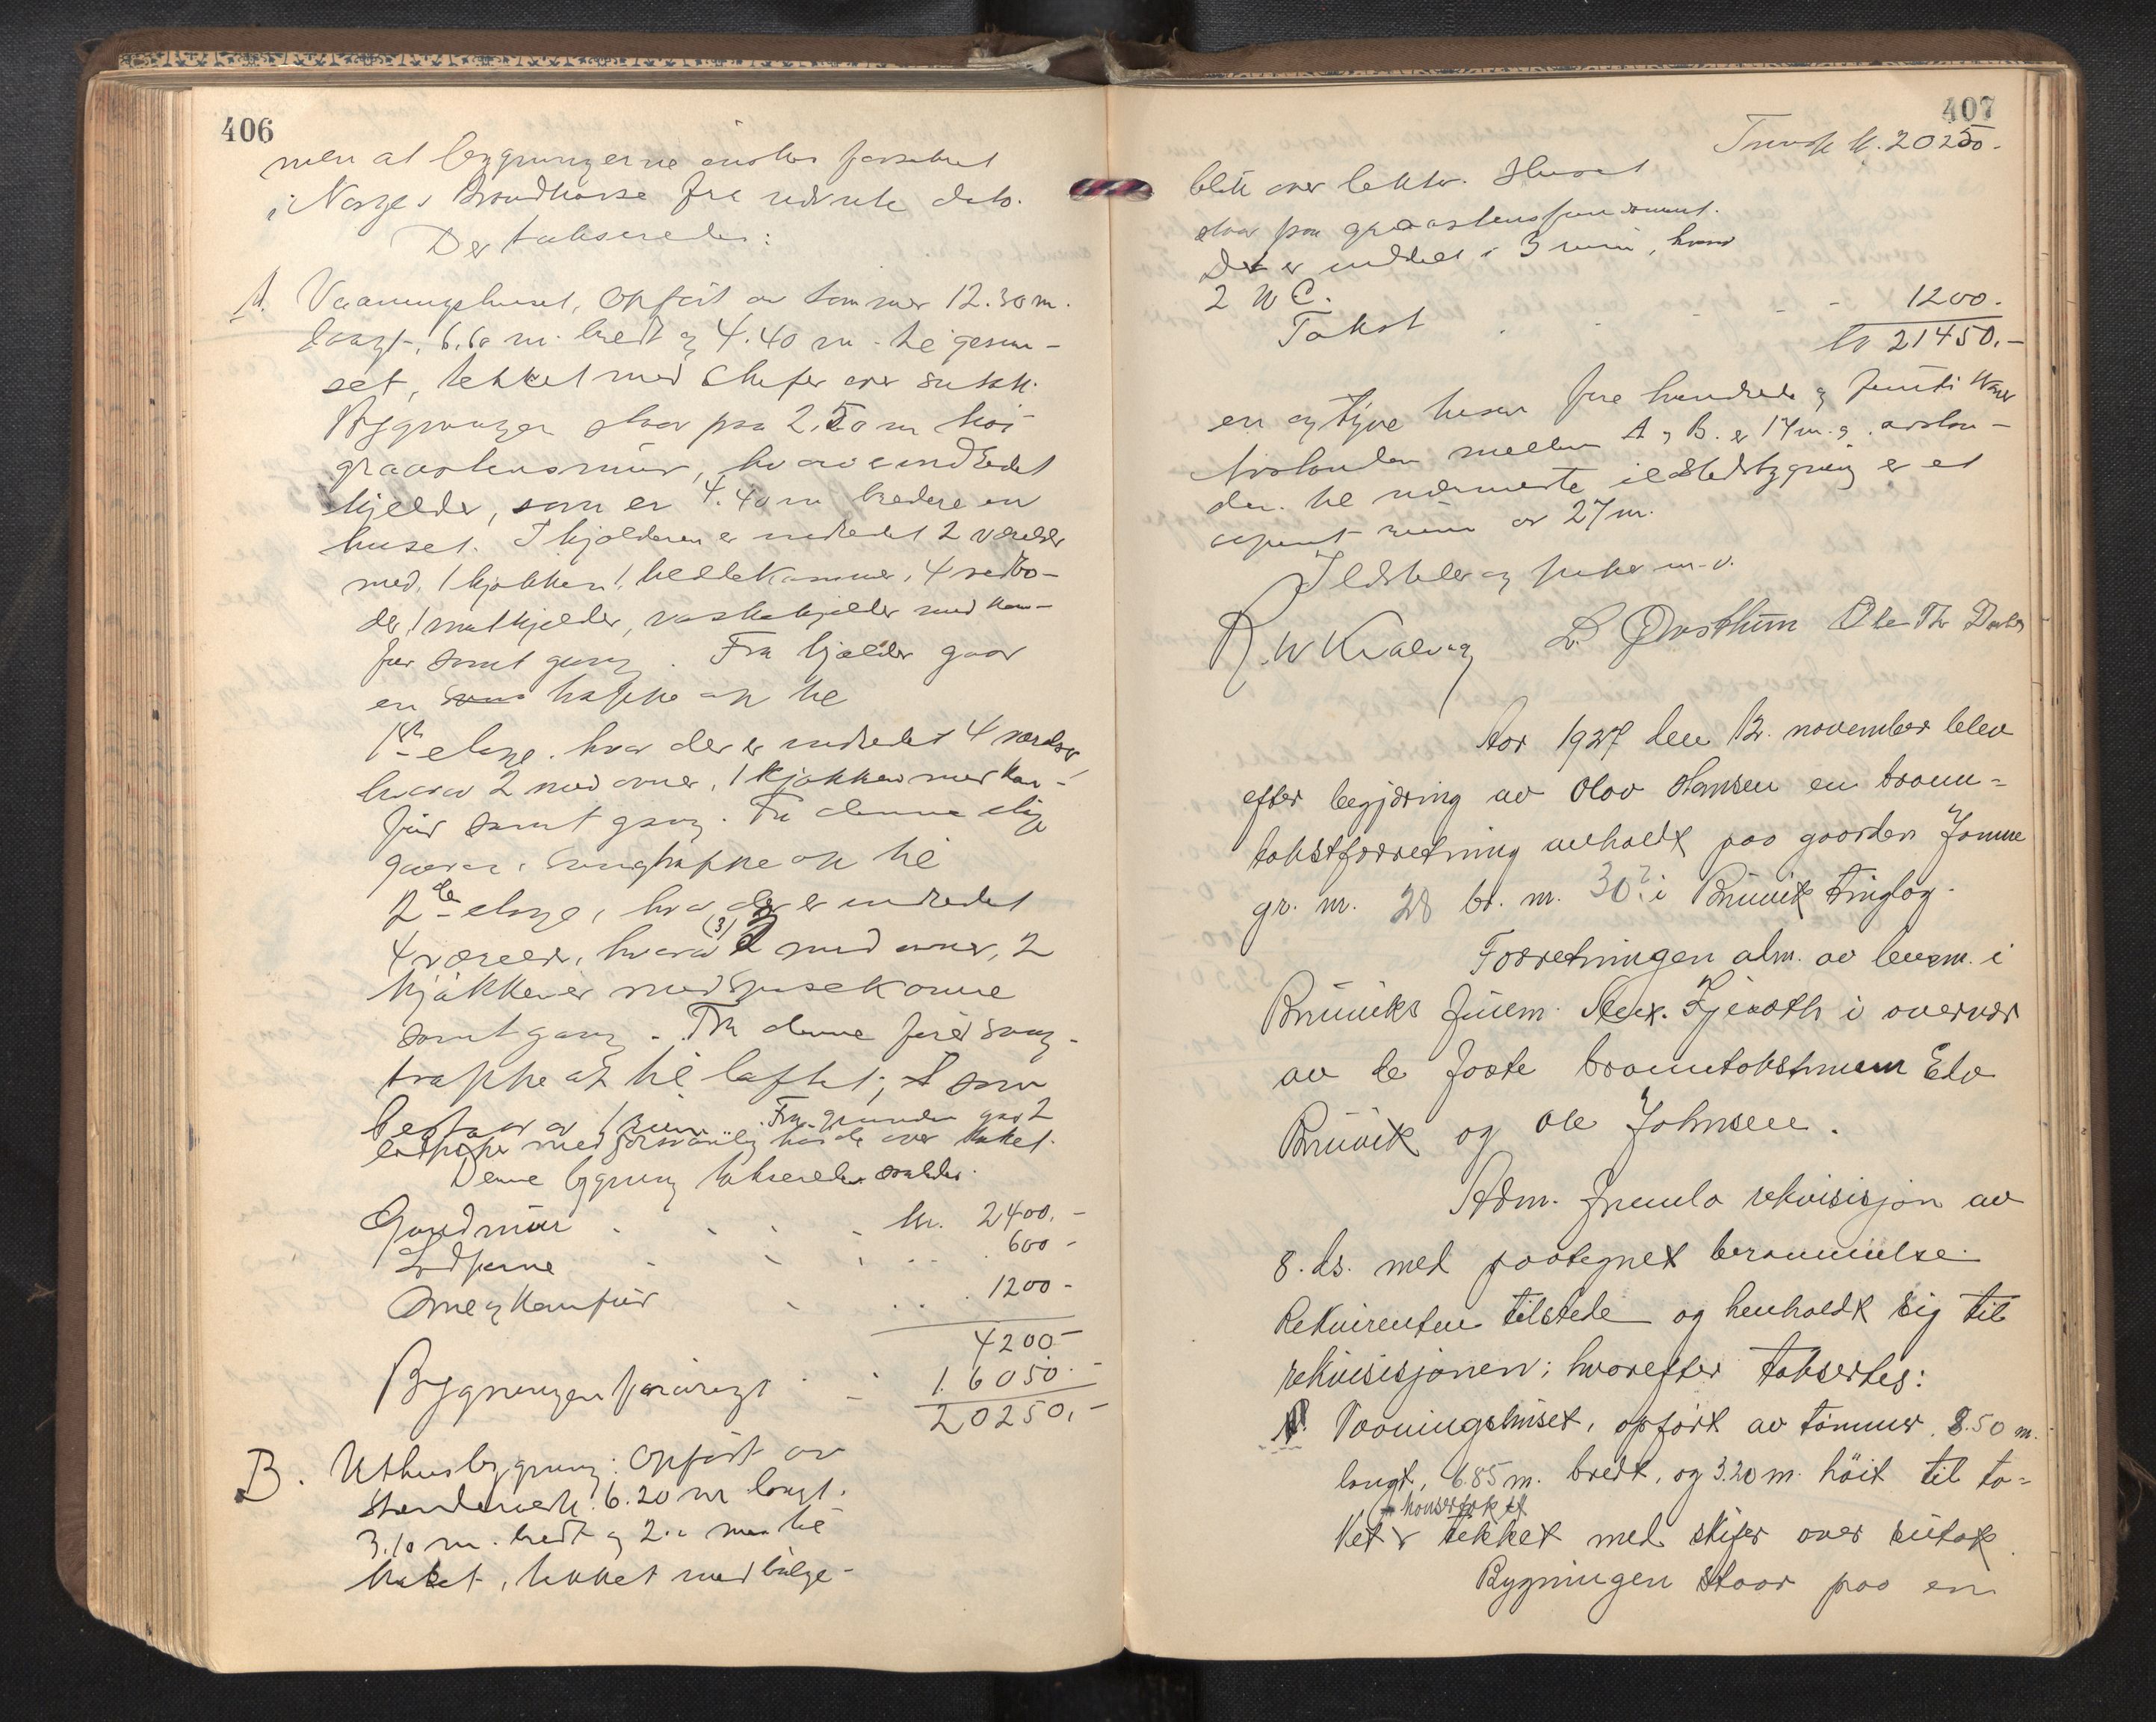 406
men at bygningerne ønskes forsikret
i Norges Brandkasse fra udsnte dato.
Der takseredes:
A. Vaaningshuset, opført av tømmer 12.30 m.
langt, 6.60 m. bredt og 4.40 m. til gesim-
set, tekket med skifer over sutak.
Bygningen staar paa 2.50 m høi
graastensmur, hvori er indredet
kjelder, som er 4.40 m bredere en
huset. I kjelderen er indredet 2 værelser
med, 1 kjøkken, 1 kammer, 4 vedbo-
der, 1 matkjelder, vaskekjelder med kom-
fur samt gang. Fra kjelder gaar
en trappe op til
1ste etage. hvor der er indredet 4 værelser
hvorav 2 med ovner, 1 kjøkken med kom-
fur samt gang. Fra denne etage
gaar en svingtrappe op til
2den etage, hvor der er indredet
4 værelser, hvorav (3) 2 med ovner, 2
kjøkkener med
samt gang. Fra denne fører sving-
trappe op til loftet, som
bestaar av 1 rum. Fra grunden gaar 2
med forsvarlig høide over taket.
Denne bygning takseredes saaledes:
Grundmur kr. 2400.-
600 -
Ovne og komfur 1200 -
4200 -
Bygningen forøvrigt 16050.-
20250.-
B. Uthusbygning: Opført av
stenderverk. 6.20 m langt.
3.10 m. bredt og 2.0 m til
taket, tekket med bølge-
407
Transp. kr. 20250.-
blik over lekter. Huset
staar paa graastensfundament.
Det er inddelt i 3 rum, hvorav
2 W C.
Takst - 1200.
kr 21450.-
en og tyve tusen fire hundrede og femti kroner
Avstanden mellem A og B. er 17 m. og avstan-
den til nærmeste ildstedsbygning er et
aapent rum av 27 m.
Ildsteder og piper m. v.
R. W Kvalvaag Ole Th Dale
Aar 1927 den 12. november blev
efter begjæring av Olav Hansen en brann-
takstforretning avholdt paa gaarden Jamne
gr. nr. 28 br. nr. 30? i Bruvik tinglag.
Forretningen adm. av lensm. i
Bruviks fuldm. Alex. i overvær
av de faste branntakstmenn Edv
Bruvik og Ole Johnsen.
Adm. fremla rekvisisjon av
8. ds. med paategnet berammelse.
Rekvirenten tilstede og henholdt sig til
rekvisisjonen; hvorefter taksertes:
A. Vaaningshuset, opført av tømmer 8.50 m.
langt, 6.85 m. bredt, og 3.20 m. høit til ta-
ket, tekket med skifer over sutak.
Bygningen staar paa en